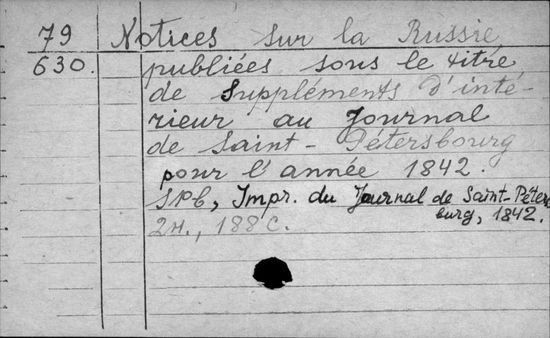 79 Notices sur la Russie
630. publiées sous le titre
de Suppléments d'inté-
rieur au Journal
de Saint-Pétersbourg
pour l'année 1842.
SPb, Impr. du Journal de Saint-Péters
burg, 1842.
2н., 188 с.